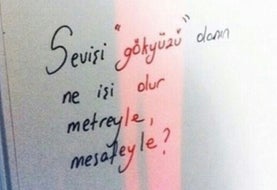 Sevişi "gökyüzü" olanın
ne işi olur
metreyle,
mesafeyle?